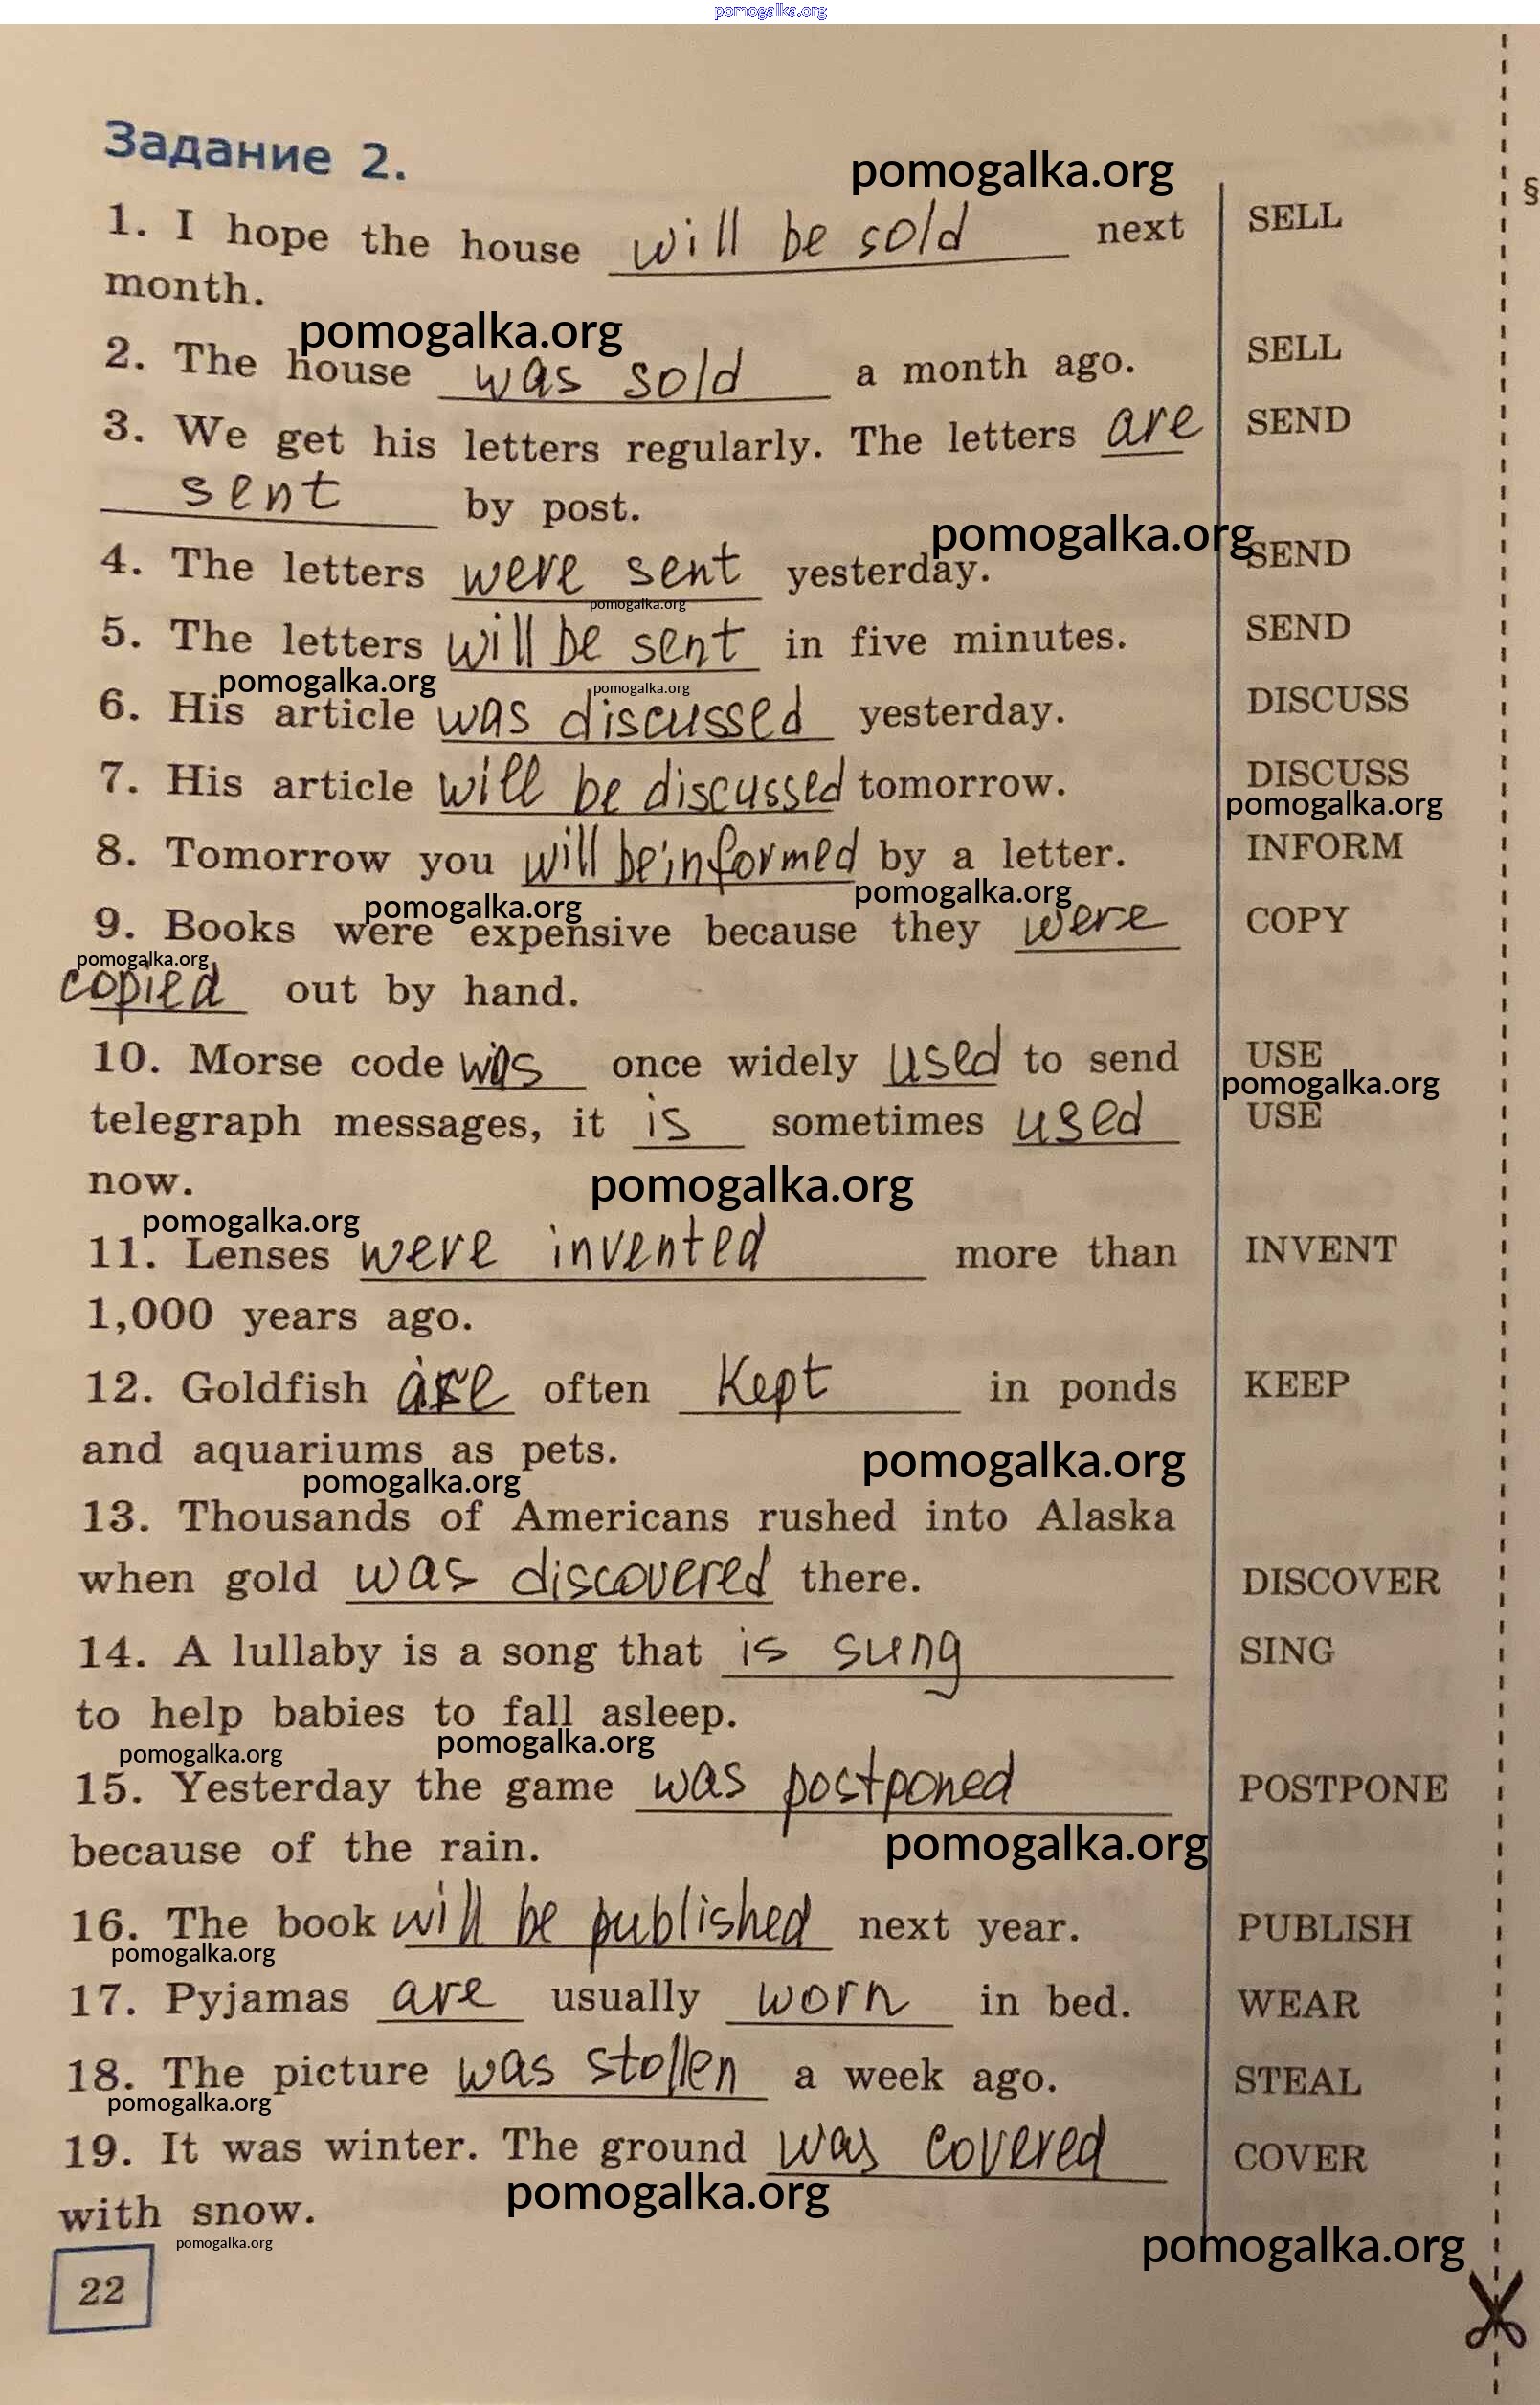 pomogalka.org
Задание 2.
pomogalka.org
§
1. I hope the house will be sold next SELL
month.
pomogalka.org
2. The house was sold a month ago. SELL
3. We get his letters regularly. The letters are SEND
sent by post.
pomogalka.org
4. The letters were sent yesterday. SEND
pomogalka.org
5. The letters will be sent in five minutes. SEND
pomogalka.org pomogalka.org
6. His article was discussed yesterday. DISCUSS
7. His article will be discussed tomorrow. DISCUSS
pomogalka.org
8. Tomorrow you will be informed by a letter. INFORM
pomogalka.org pomogalka.org
9. Books were expensive because they were COPY
pomogalka.org
copied out by hand.
10. Morse code was once widely used to send USE
pomogalka.org
telegraph messages, it is sometimes used USE
now.
pomogalka.org
pomogalka.org
11. Lenses were invented more than INVENT
1,000 years ago.
12. Goldfish are often kept in ponds KEEP
and aquariums as pets.
pomogalka.org pomogalka.org
13. Thousands of Americans rushed into Alaska
when gold was discovered there. DISCOVER
14. A lullaby is a song that is sung SING
to help babies to fall asleep.
pomogalka.org pomogalka.org
15. Yesterday the game was postponed POSTPONE
because of the rain.
pomogalka.org
16. The book will be published next year. PUBLISH
pomogalka.org
17. Pyjamas are usually worn in bed. WEAR
18. The picture was stollen a week ago. STEAL
pomogalka.org
19. It was winter. The ground was covered COVER
with snow.
pomogalka.org
pomogalka.org
pomogalka.org
22